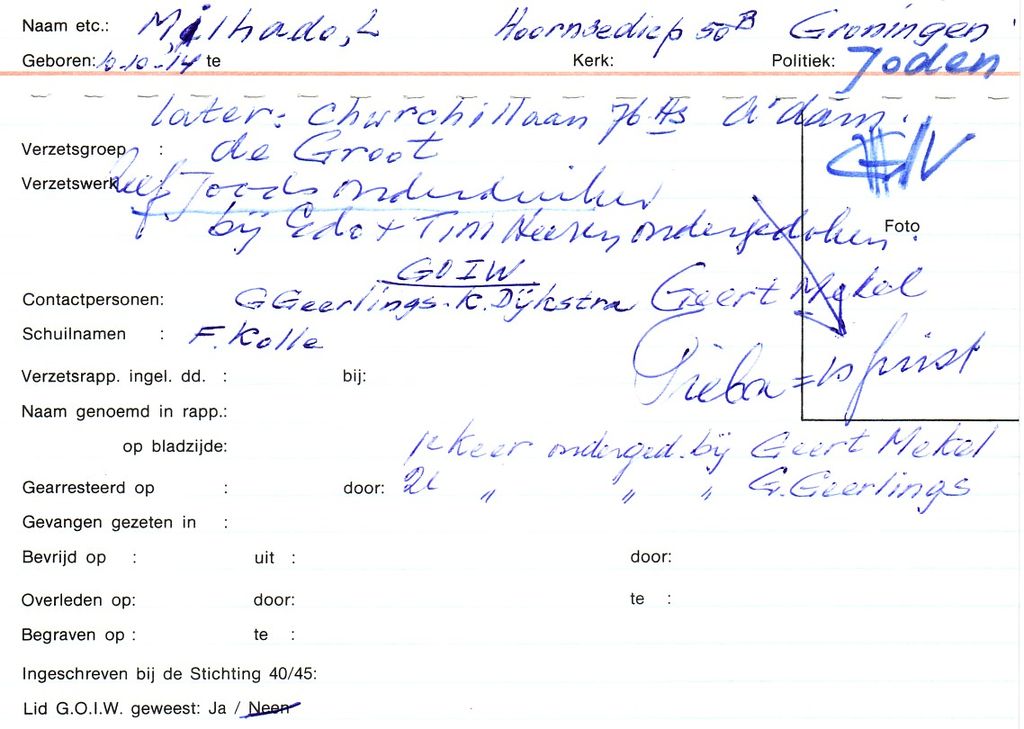 Naam etc.: Milhado, L Hoornsediep 50B Groningen
Geboren: 10-10-14 te Kerk: Politiek: Joden
later: Churchillaan 76 Hs A'dam.
Verzetsgroep : de Groot
Verzetswerk Joods onderduiker
bij Edo + Tini ondergedoken.
Foto
GOIW
Contactpersonen: G Geerlings - K. Dijkstra Geert Mekel
Schuilnamen : F. Kolle
= juist
Verzetsrapp. ingel. dd. : bij:
Naam genoemd in rapp.:
op bladzijde: 1e keer onderged. bij Geert Mekel
Gearresteerd op : door: 2e " " " G. Geerlings
Gevangen gezeten in :
Bevrijd op : uit : door:
Overleden op: door: te :
Begraven op : te :
Ingeschreven bij de Stichting 40/45:
Lid G.O.I.W. geweest: Ja / Neen